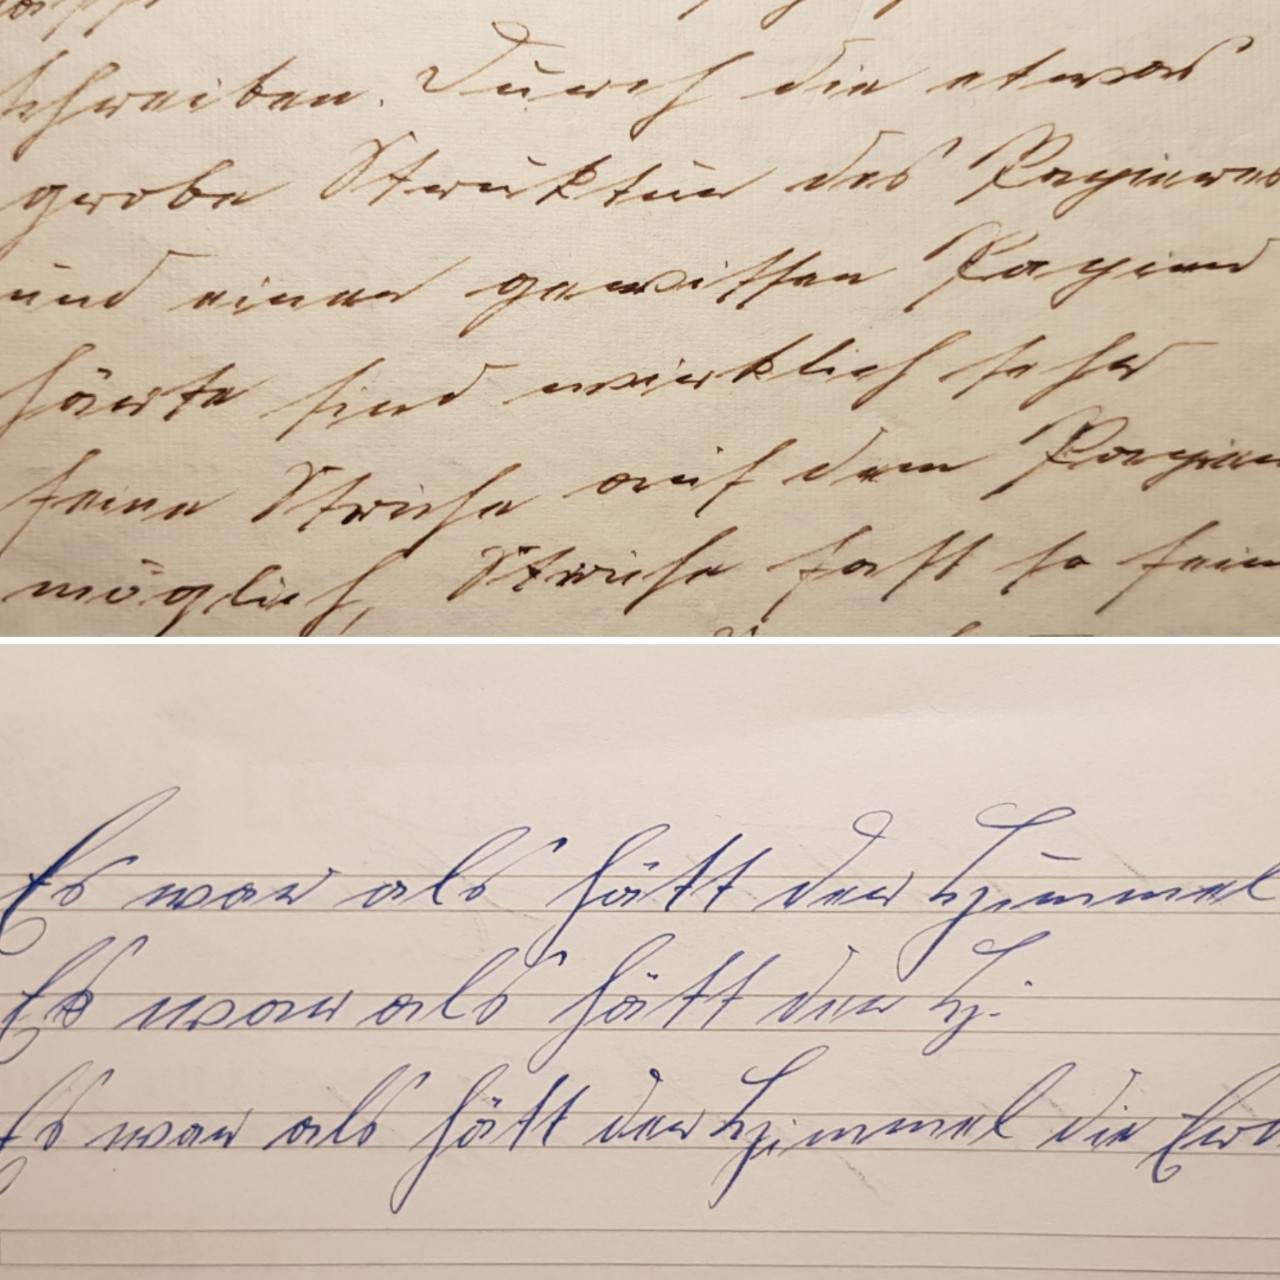 schreiben. Durch die etwas
grobe Struktur des Papieres
und einer gewissen Papier
härte sind wirklich sehr
feine Striche auf dem Papier
möglich, Striche fast so fein
Es war als hätt der Himmel
Es war als hätt der Hi
Es war als hätt der Himmel die Erd